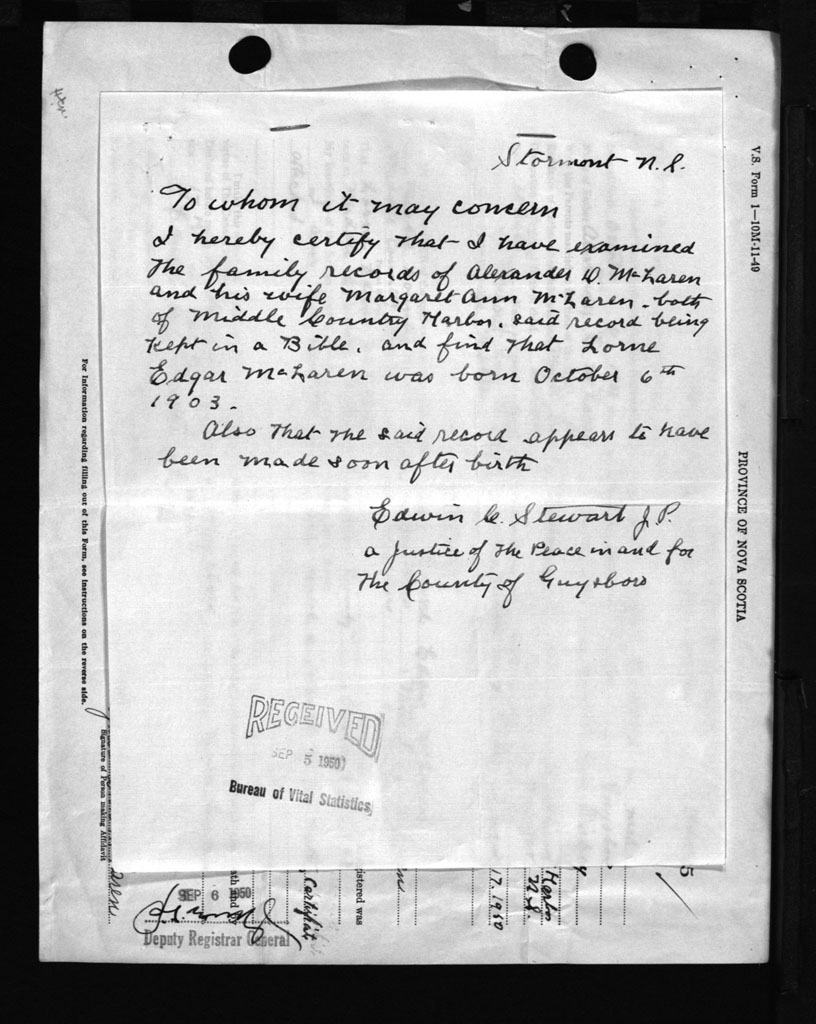 Stormont N.S.
To whom it may concern
I hereby certify that I have examined
the family records of Alexander D. McLaren
and his wife Margaret Ann McLaren. both
of Middle Country Harbor. said record being
kept in a Bible. and find that Lorne
Edgar McLaren was born October 6th
1903.
Also that the said record appears to have
been made soon after birth
Edwin C. Stewart J.P.
a Justice of the Peace in and for
the County of Guysboro
RECEIVED
SEP 5 1950
Bureau of Vital Statistics,
SEP 6 1950
Deputy Registrar General
V.S. Form 1—10M-11-49
PROVINCE OF NOVA SCOTIA
For information regarding filling out of this Form, see instructions on the reverse side.
Signature of Person making Affidavit
istered was
17. 1950
Harbor
N.S.
5